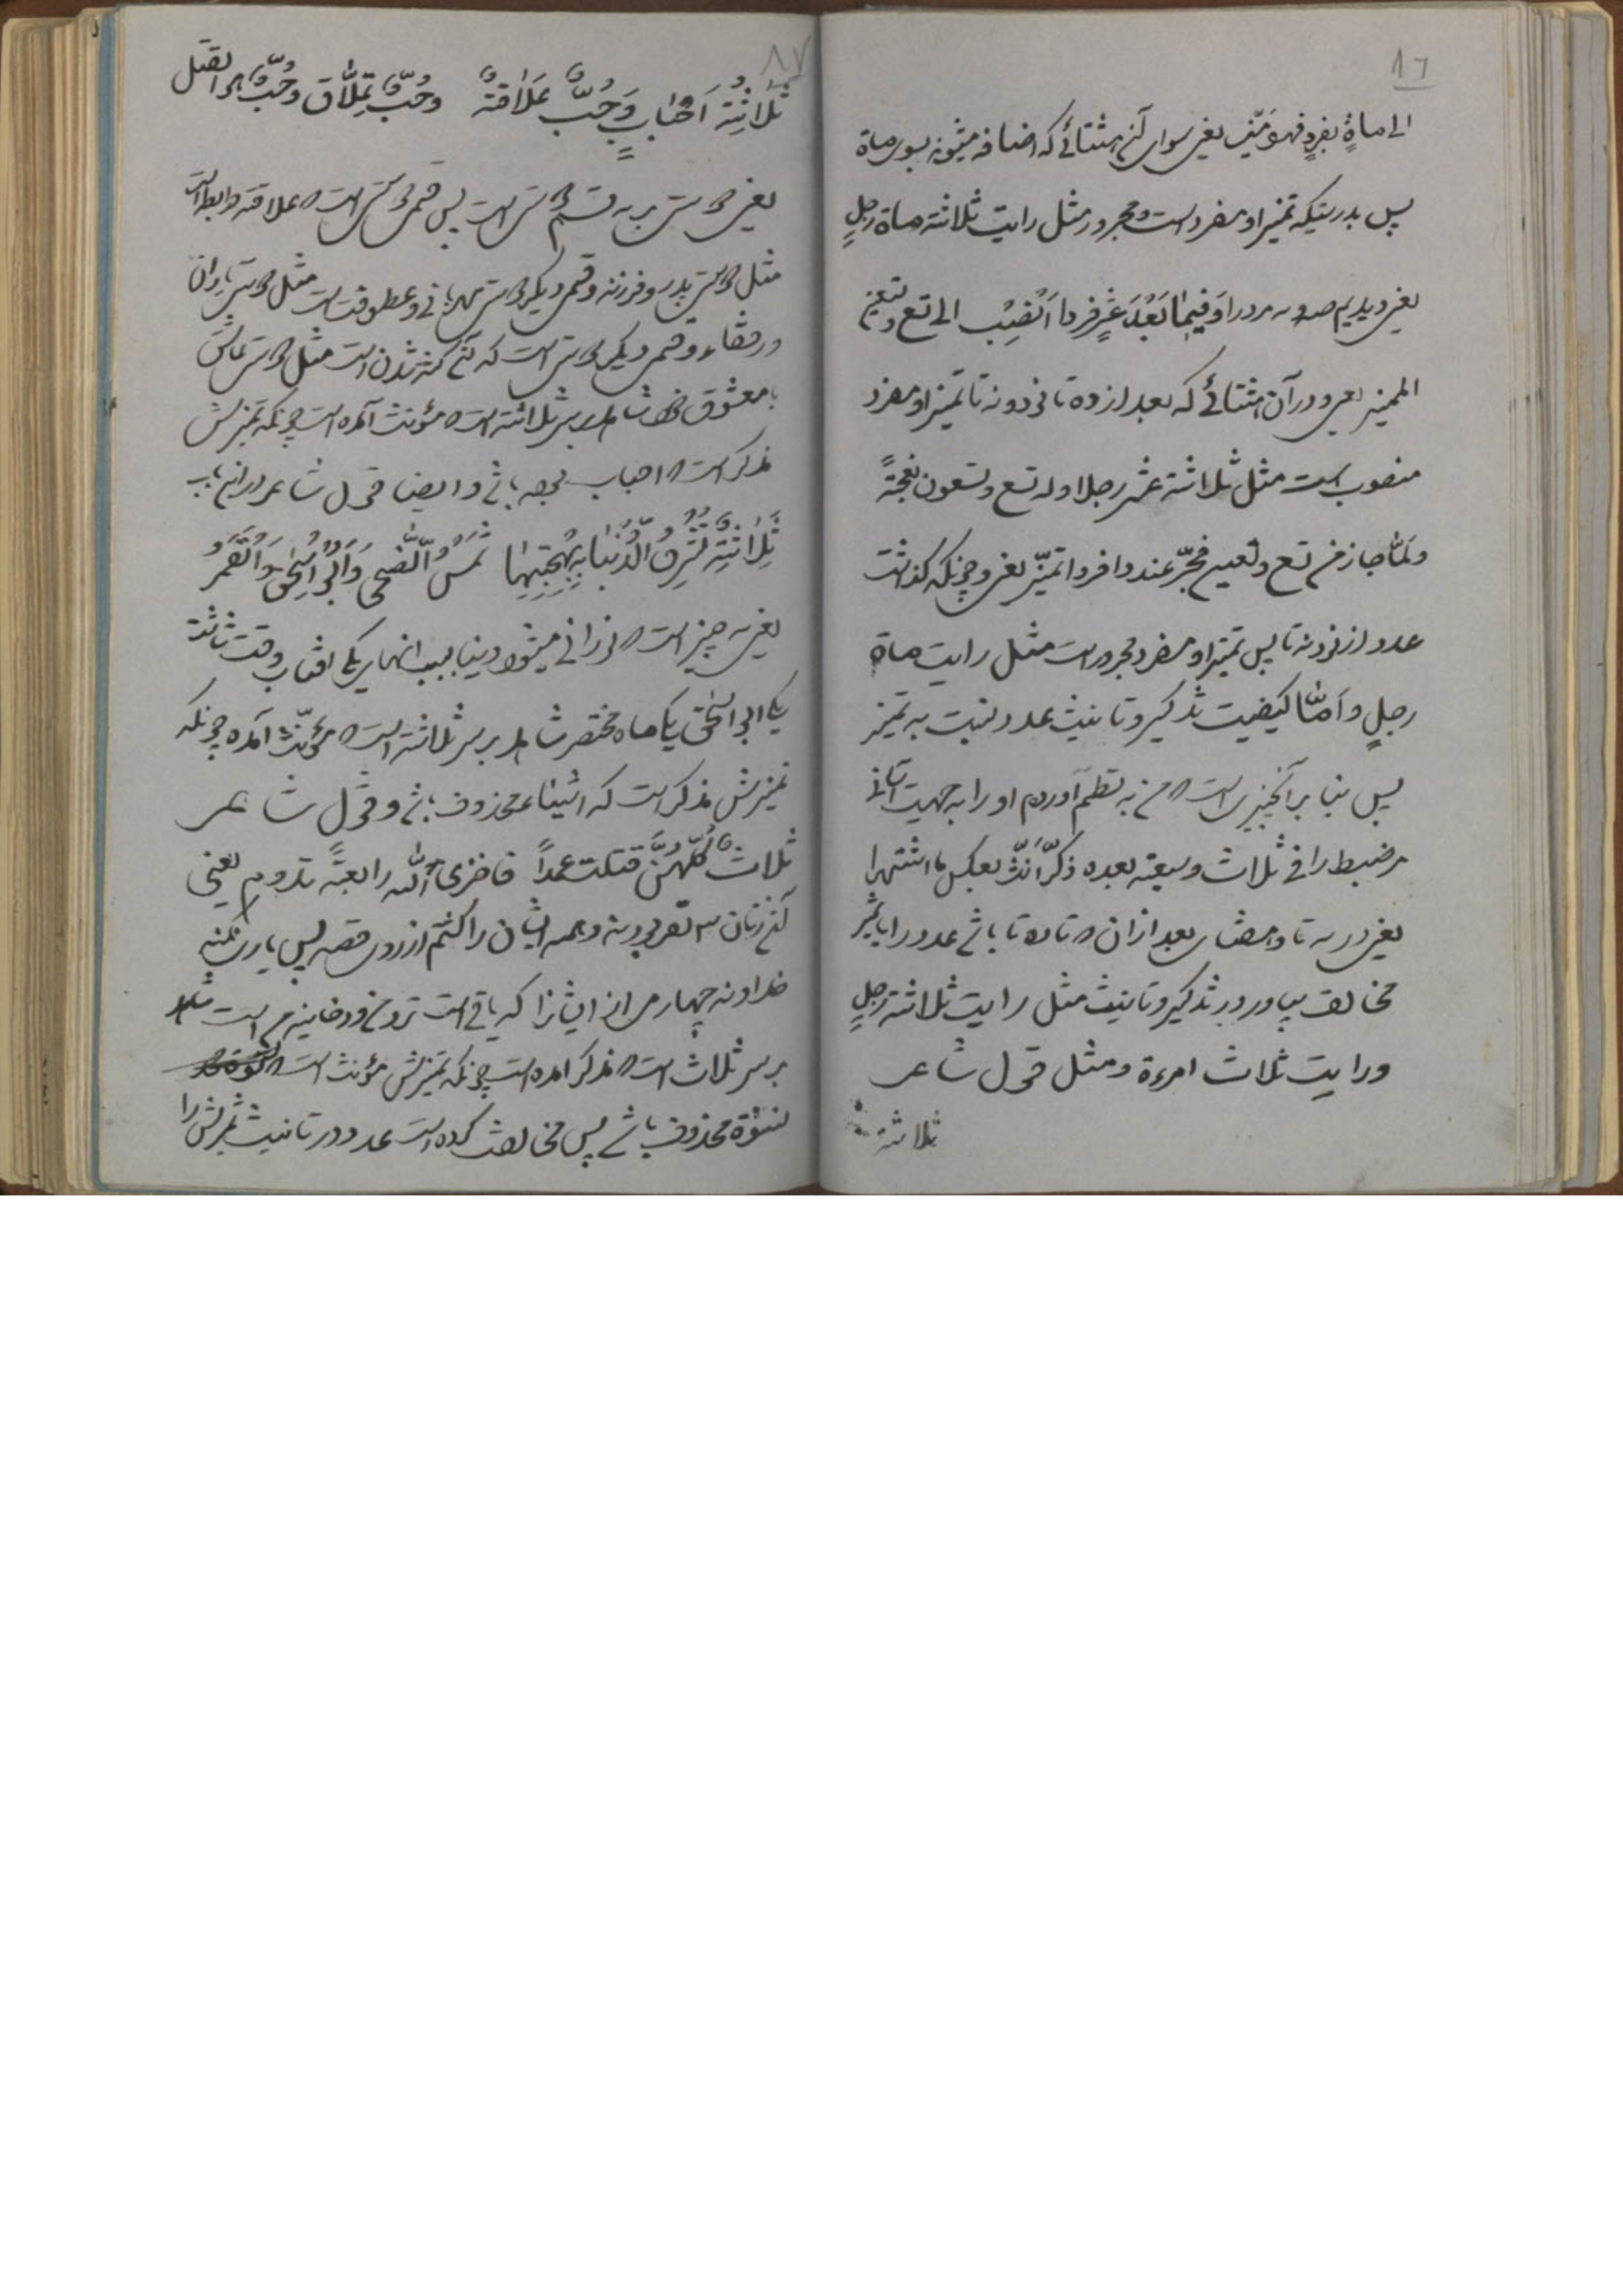 ٨٦
الی ماةٍ بفردٍ فهو مَیّن یعنی سوای آنچه مثتائے که اضافه میشوند بسوی ماة
پس بدرستیکه تمیز او مفرد است و مجرور مثل رایت ثلاثة ماة رجلٍ
یعنی دیدیم صد مرد را وَفیما بَعْدَ عَشْرٍ فرداً اَنْصِبْ الی تسع و تسعین
الممیز یعنی و در آن مثتائے که بعد از ده تا نود و نه تا تمیز او مفرد
منصوب است مثل ثلاثة عشر رجلا وله تسع و تسعون نعجةً
ولمّا جاز من تسع و تسعین فجرّ عندد افرد اتمیّز یعنی و چونکه گذشت
عدد از نود نه تا پس تمیز او مفرد مجرور است مثل رایت ماة
رجلٍ و اَمّا کیفیت تذکیر و تانیث عدد نسبت به تمیز
پس بنا بر آنچیزی است که من به نظم آوردم او را به جهت آسانی
مر ضبط را فی ثلاث و سبعة بعده ذکّر اَنّث بعکس ما اشتهرا
یعنی در سه تا و هفتای بعد از آن که تا ده تا باشد عدد را با تمیز
مخالف بیاور در تذکیر و تانیث مثل رایت ثلاثة رجلٍ
و رایت ثلاث امرءة و مثل قول شاعر
ثلاثة
٨٧
ثَلاثَةُ اَحْبابٍ وَحُبٌّ عَلاقةٌ وحُبٌّ تِمِلّاق وحُبٌّ هو القتل
یعنی دوستی بر سه قسم دوستی است پس قسمی دوستی است که علاقه و رابطه است
مثل دوستی پدر و فرزند و قسمی دیگر دوستی مهربانی و عطوفت است مثل دوستی یاران
و رفقاء و قسمی دیگر دوستی است که آنچه کشته شدن است مثل دوستی عاشق
با معشوق شاهد بر سر ثلاثة است که مؤنث آمده است چونکه تمیزش
مذکر است که احباب بوده باشد و ایضا قول شاعر در این باب
ثَلاثَةٌ تُشْرِقُ الدُّنْیا بِبَهْجَتِها شَمْسُ الضُّحی وَاَبُو اِسْحقَ وَالقَمَرُ
یعنی سه چیز است که نورانی میشود دنیا بسبب انها یکی افتاب وقت چاشت
یکی ابو اسحق یکی ماه مختصر شاهد بر سر ثلاثة است که مؤنّث آمده چونکه
تمیزش مذکر است که اشیاء محذوف باشد و قول شاعر
ثلاثٌ کلّهُنَّ قتلت عمداً فاخزی الله رابعةً تدوم یعنی
آنچه زنان سه نفر بودند و همه ایشان را کشتم از روی قصد پس یاری نکند
خداوند چهارمی از ایشانرا که باقی است
بر سر ثلاث است که مذکر امده است چونکه تمیزش مؤنث است که
نسوة محذوف باشد پس مخالفت کرده است عدد در تانیث تمیزش را